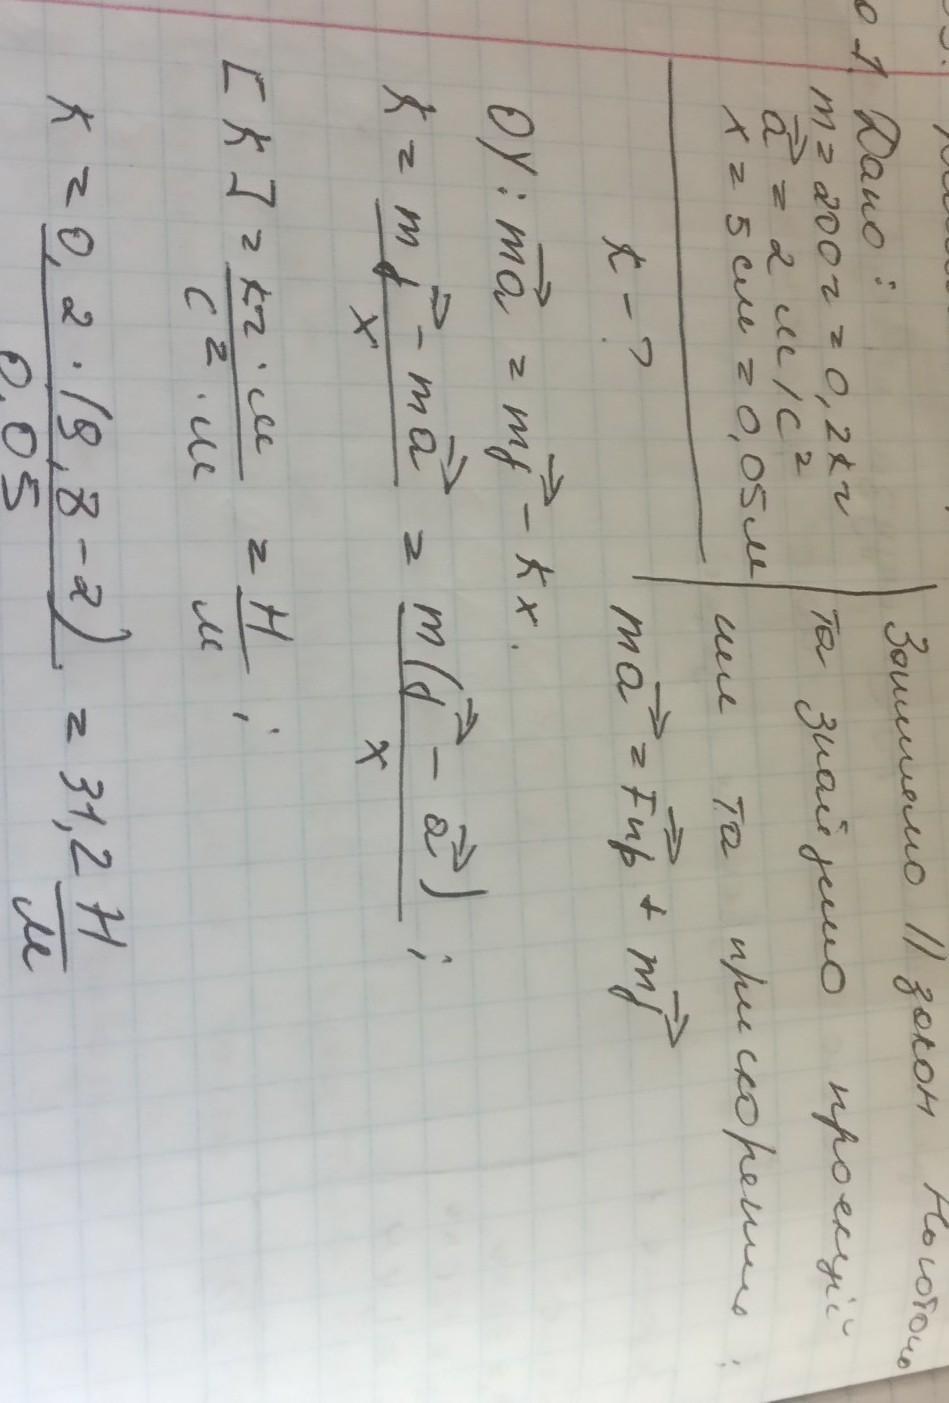 1. Дано:
m = 200 г = 0,2 кг
a⃗ = 2 м/с²
x = 5 см = 0,05 м
k - ?
Запишемо II закон Ньютона
та знайдемо проекції
сил та прискорення:
ma⃗ = F⃗пр + mg⃗
OY: ma⃗ = mg⃗ - kx.
k = (mg⃗ - ma⃗)/x = m(g⃗ - a⃗)/x ;
[k] = кг·м/с²·м = Н/м ;
k = 0,2·(9,8-2)/0,05 = 31,2 Н/м